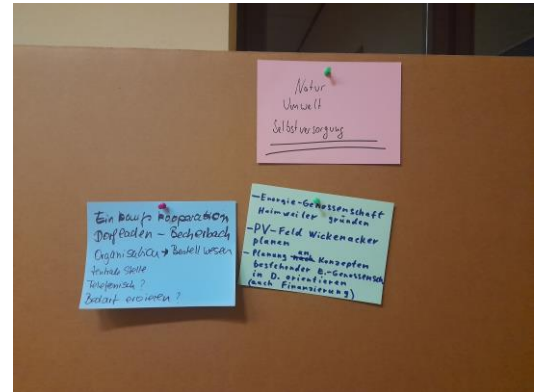 Natur
Umwelt
Selbstversorgung
Einkaufs kooperation
Dorfladen - Becherbach
Organisation → Bestellwesen
zentrale Stelle
Telefonisch?
Bedarf eroieren?
- Energie-Genossenschaft
Heimweiler gründen
- PV-Feld Wickenacker
planen
- Planung an Konzepten
bestehender E.-Genossensch.
in D. orientieren
(auch Finanzierung)